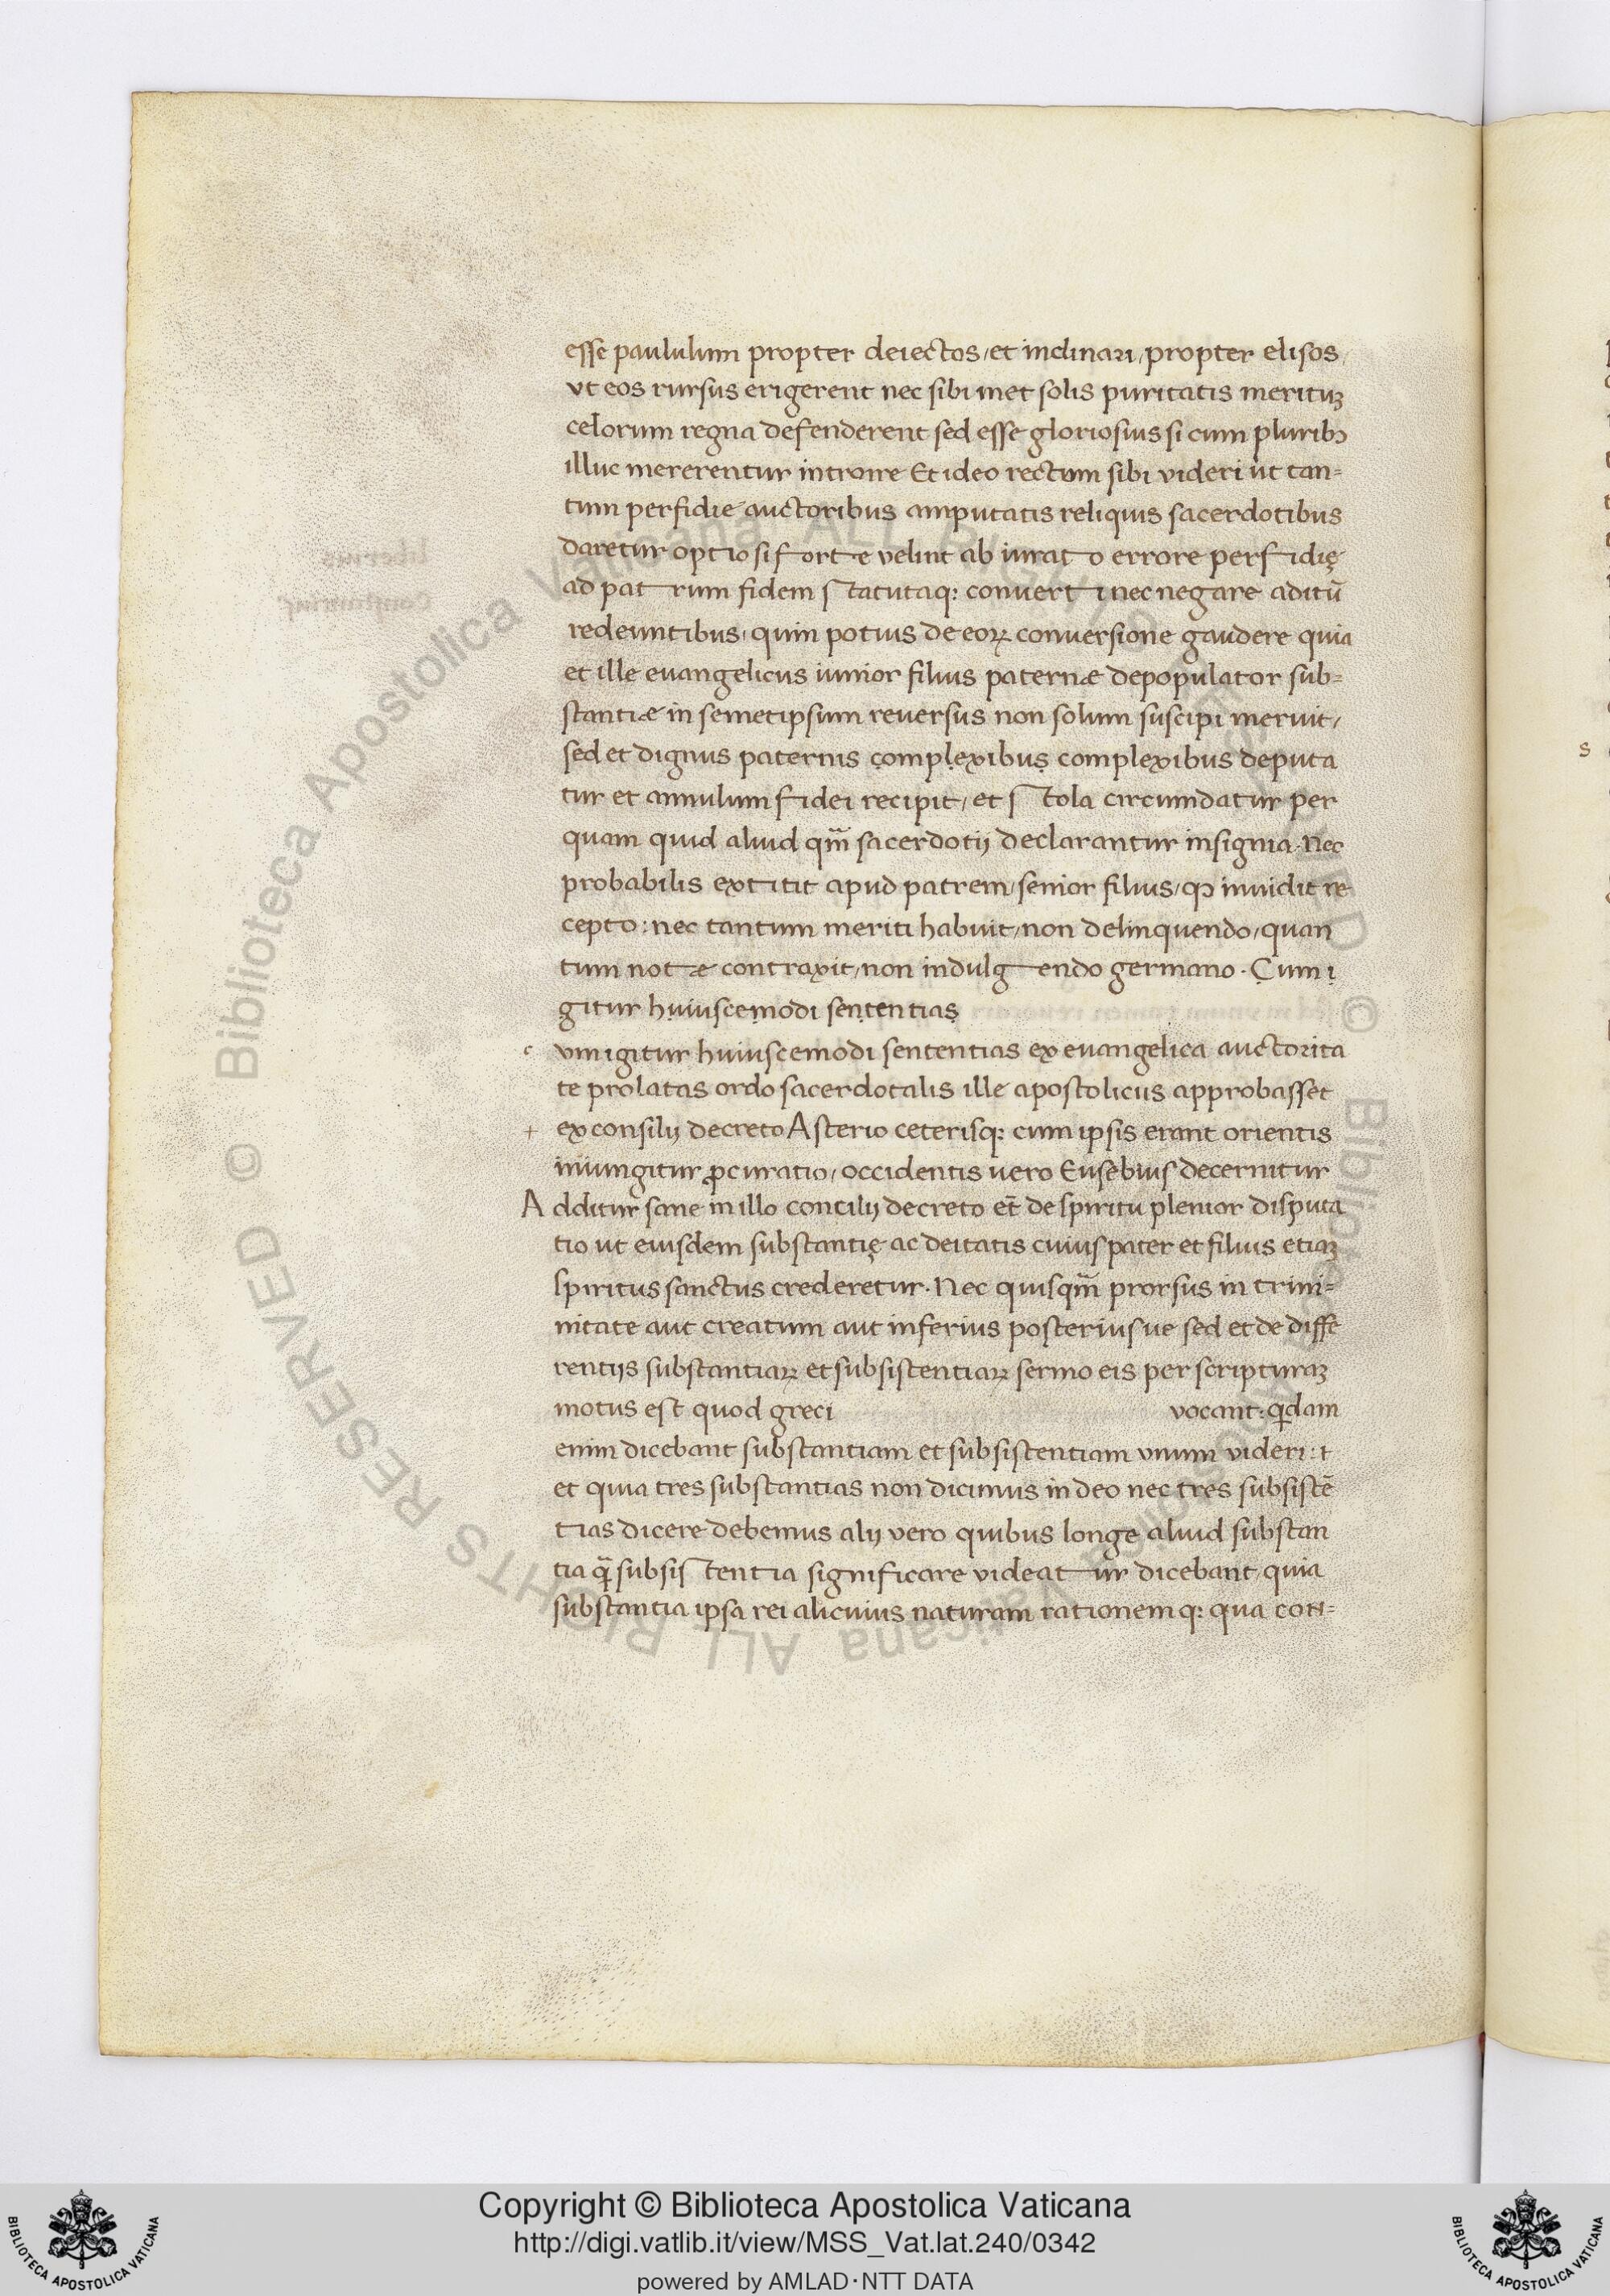 esse paululum propter deiectos, et inclinari, propter elisos,
vt eos rursus erigerent nec sibi met solis puritatis merituꝫ
celorum regna defenderent sed esse gloriosius si cum pluribꝫ
illuc mererentur introire Et ideo rectum sibi videri ut tan=
tum perfidie auctoribus amputatis reliquis sacerdotibus
daretur optio si forte velint ab iurato errore perfidię
ad patrum fidem statutaqꝫ converti nec negare aditū
redeuntibus, quin potius de eoꝝ conuersione gaudere quia
et ille euangelicus iunior filius paternæ depopulator sub=
stantiæ in semetipsum reuersus non solum suscipi meruit,
sed et dignus paternis complexibus complexibus deputa
tur et annulum fidei recipit, et stola circumdatur per
quam quid aliud qm̄ sacerdotij declarantur insignia. Nec
probabilis extitit apud patrem, senior filius, qꝫ inuidit re
cepto: nec tantum meriti habuit, non delinquendo, quan
tum notæ contraxit, non indulgendo germano. Cum i
gitur huiuscemodi sententias
c vm igitur huiuscemodi sententias ex euangelica auctorita
te prolatas ordo sacerdotalis ille apostolicus approbasset
+ ex consilij decreto Asterio ceterisqꝫ cum ipsis erant orientis
iniungitur ꝓcuratio, occidentis uero Eusebius decernitur
A dditur sane in illo concilij decreto et̄ de spiritu plenior disputa
tio ut eiusdem substantię ac deitatis cuius pater et filius etiaꝫ
spiritus sanctus crederetur. Nec quisqm̄ prorsus in trini=
nitate aut creatum aut inferius posterius ue sed et de diffe
rentijs substantiaꝝ et subsistentiaꝝ sermo eis per scripturaꝫ
motus est quod greci vocant: qdam
enim dicebant substantiam et subsistentiam vnum videri: t
et quia tres substantias non dicimus in deo nec tres subsistē
tias dicere debemus alij vero quibus longe aliud substan
tia q̄ subsistentia significare videatur dicebant quia
substantia ipsa rei alicuius naturam rationem qꝫ qua con=
s
© Biblioteca Apostolica Vaticana ALL RIGHTS RESERVED
Copyright © Biblioteca Apostolica Vaticana
http://digi.vatlib.it/view/MSS_Vat.lat.240/0342
powered by AMLAD·NTT DATA
BIBLIOTECA APOSTOLICA VATICANA
BIBLIOTECA APOSTOLICA VATICANA